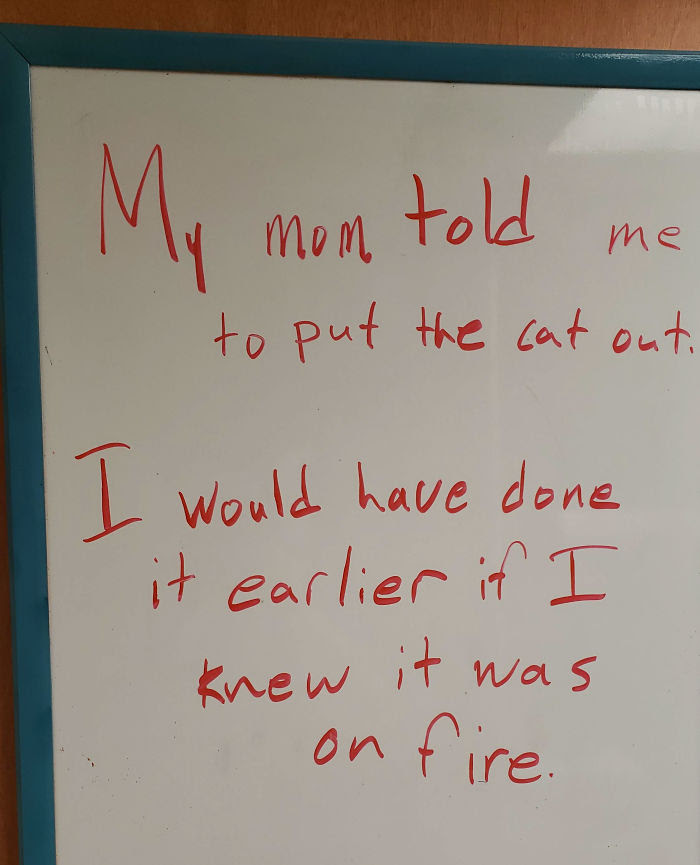 My mom told me
to put the cat out.
I would have done
it earlier if I
knew it was
on fire.